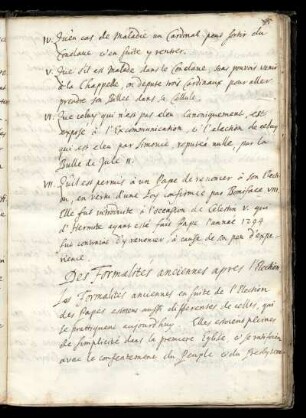 IV. Qu'en cas de Maladie un Cardinal peus sortir du
Conclave & en suite y rentrer.
V. Que s'il est Malade dans le Conclave, sans pouvoir venir
à la Chappelle, on depute trois Cardinaux pour aller
prendre son Billet dans sa Cellule.
VI. Que celuy qui n'est pas eleu Canoniquement, est
exposé à l'Excomunication, & l'election de celuy
qui est eleu par Simonie, reputée nulle, par la
Bulle de Jule II.
VII. Qu'il est permis à un Pape de renoncer à son Electi
on, en vertu d'une Loy confirmée par Boniface VIII
Elle fut introduite à l'occasion de Celestin V. qui
d'Hermite ayant esté fait Pape l'année 1294
fut contraint d'y renoncer, à cause de son peu d'expe
rience.
Des Formalités anciennes apres l'Election
Les Formalités anciennes en suite de l'Election
des Papes estoient aussi differentes de celles, qui
se pratiquent aujourdhuy. Elles estoient pleines
de simplicité dans la premiere Eglise & se faisoient
avec le consentement du Peuple &